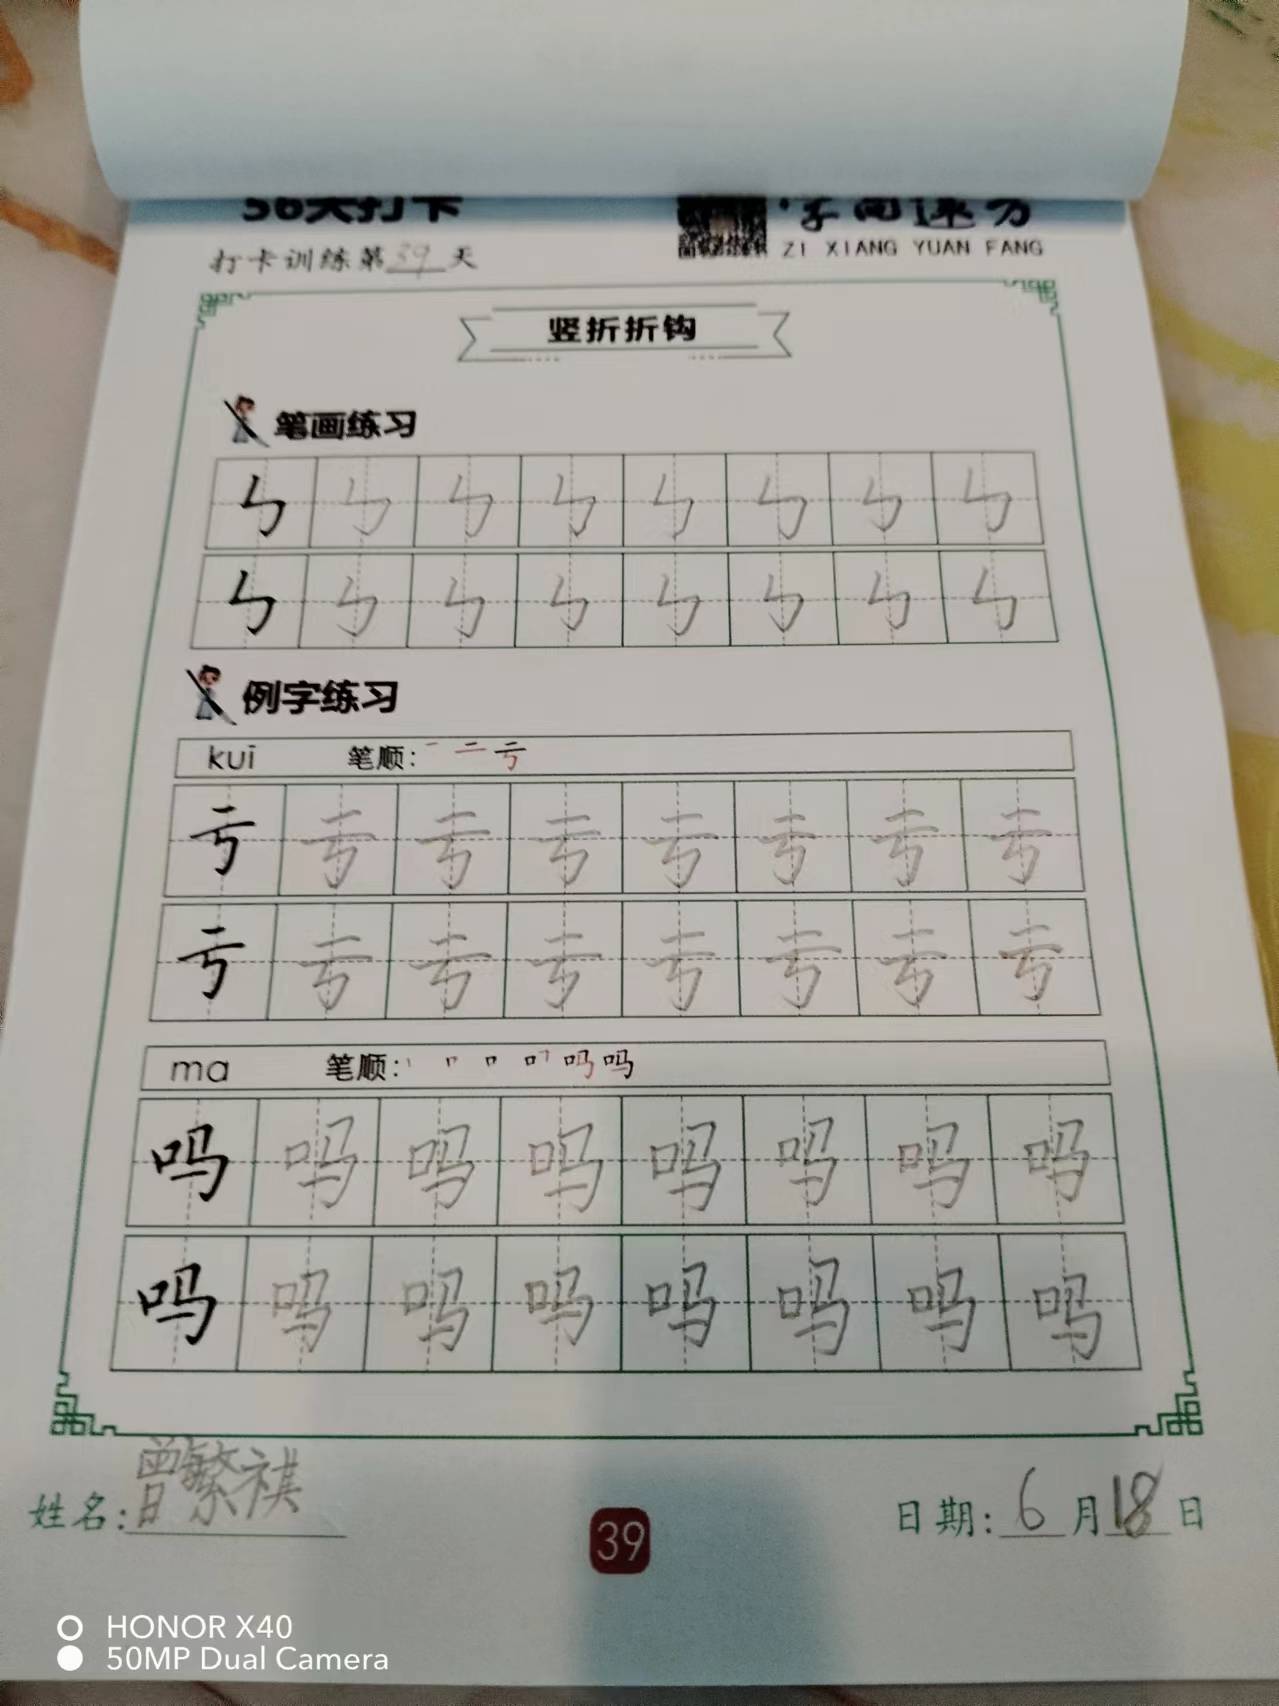 56天打卡
字向速方
ZI XIANG YUAN FANG
打卡训练第39天
竖折折钩
笔画练习
ㄣ ㄣ ㄣ ㄣ ㄣ ㄣ ㄣ ㄣ
ㄣ ㄣ ㄣ ㄣ ㄣ ㄣ ㄣ ㄣ
例字练习
kuī 笔顺: 一 二 亏
亏 亏 亏 亏 亏 亏 亏 亏
亏 亏 亏 亏 亏 亏 亏 亏
ma 笔顺: 吗 吗
吗 吗 吗 吗 吗 吗 吗 吗
吗 吗 吗 吗 吗 吗 吗 吗
姓名:曾繁祺
39
日期:6月18日
HONOR X40
50MP Dual Camera